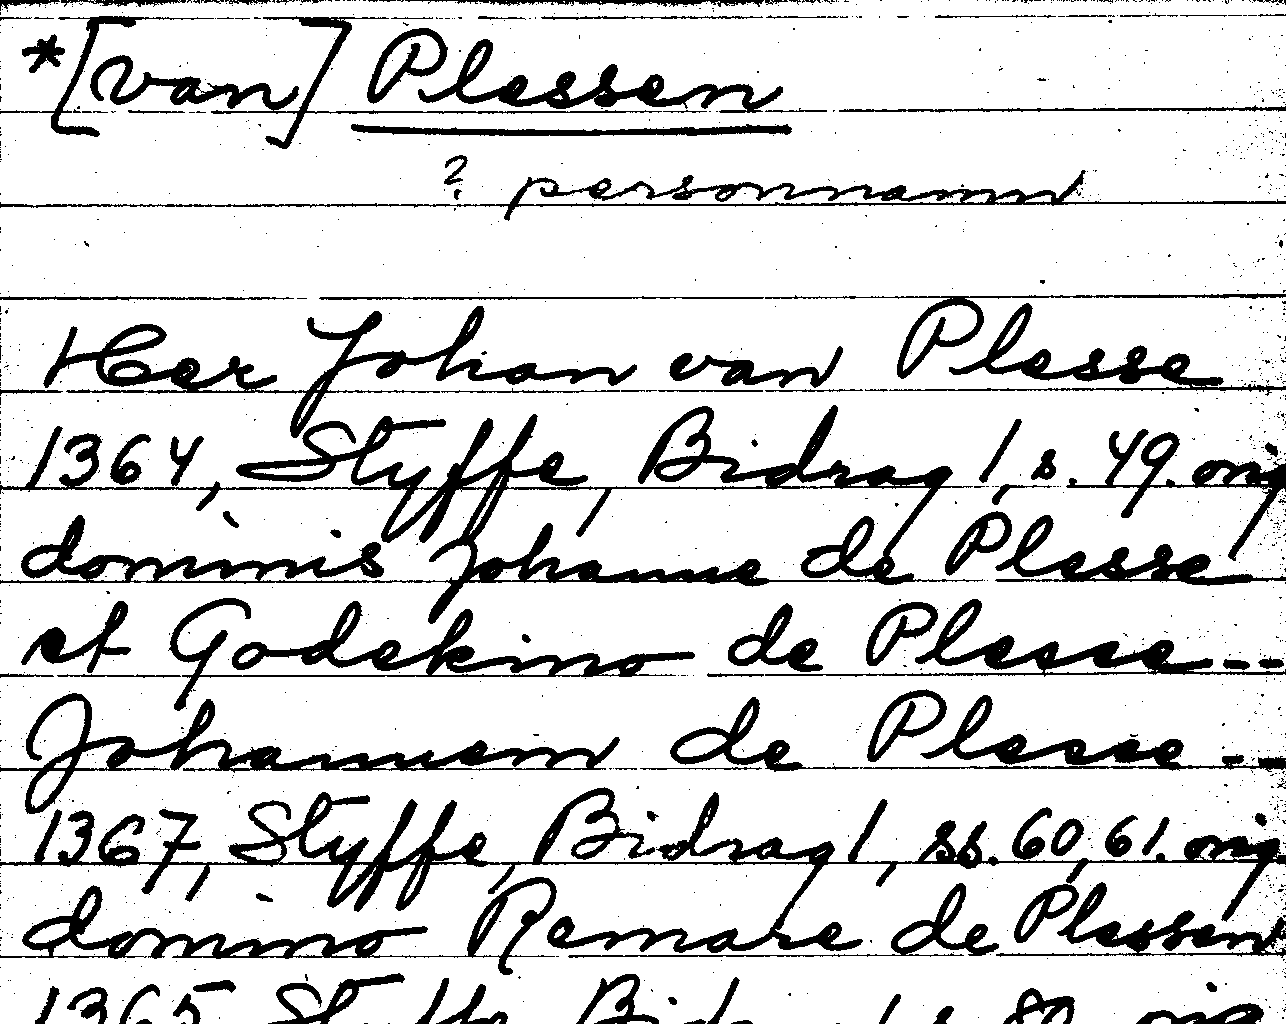 *[van] Plessen
? personnamn
Her Johan van Plesse
1364, Styffe, Bidrag 1, s. 49. orig
dominis Johanne de Plesse
et Godekino de Plesse --
Johannem de Plesse --
1367, Styffe, Bidrag 1, ss. 60, 61. orig.
domino Remare de Plessen
1365 Styffe Bidrag 1 s. 80 orig